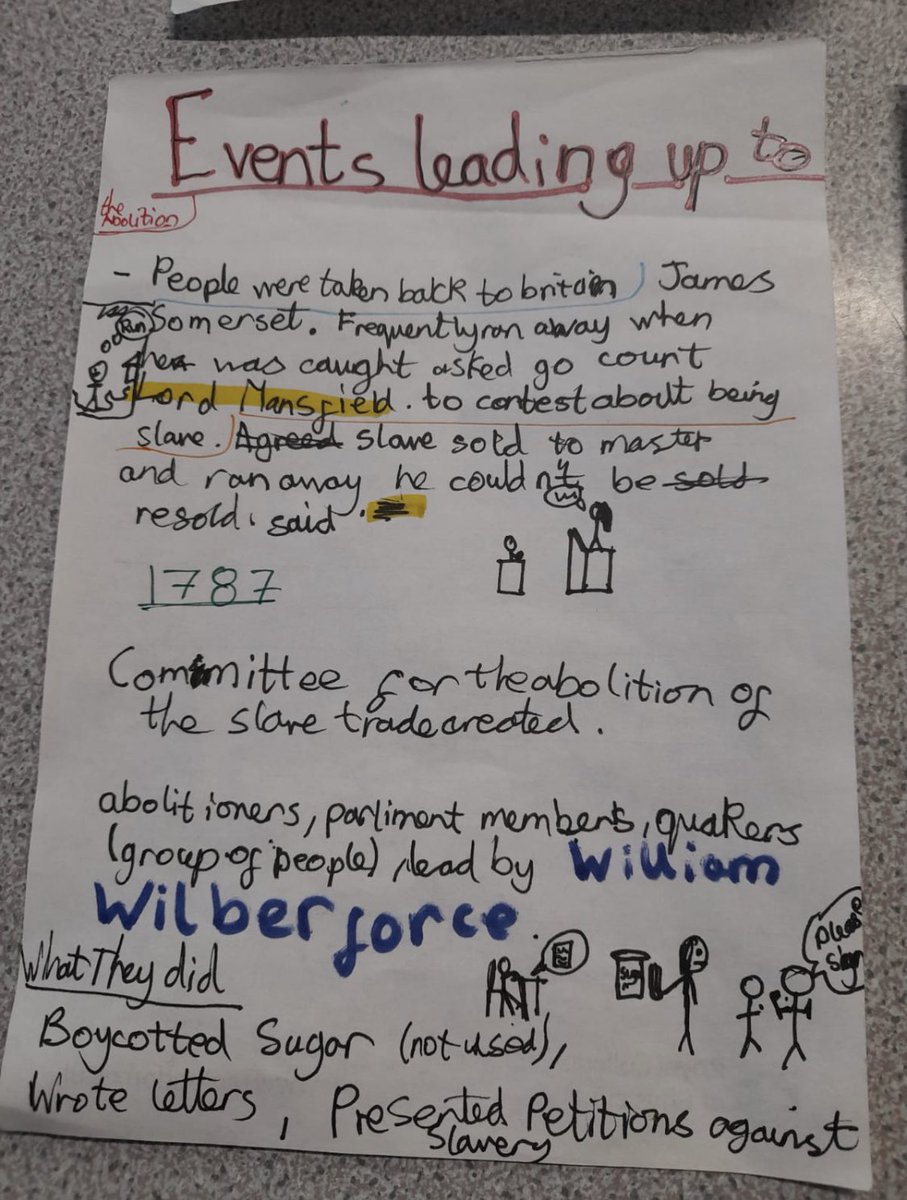 Events leading up to
the Abolition
- People were taken back to britain James
Run
Somerset. Frequently ran away when
then was caught asked go court
Lord Mansfield. to contest about being
slave. Agreed slave sold to master
and ran away he couldn't be sold
resold. said.
1787
Committee for the abolition of
the slave trade created.
abolitioners, parliment members, quakers
(group of people), lead by William
Wilberforce.
What They did
Please
Sign
Boycotted Sugar (not used),
Wrote letters, Presented Petitions against
Slavery